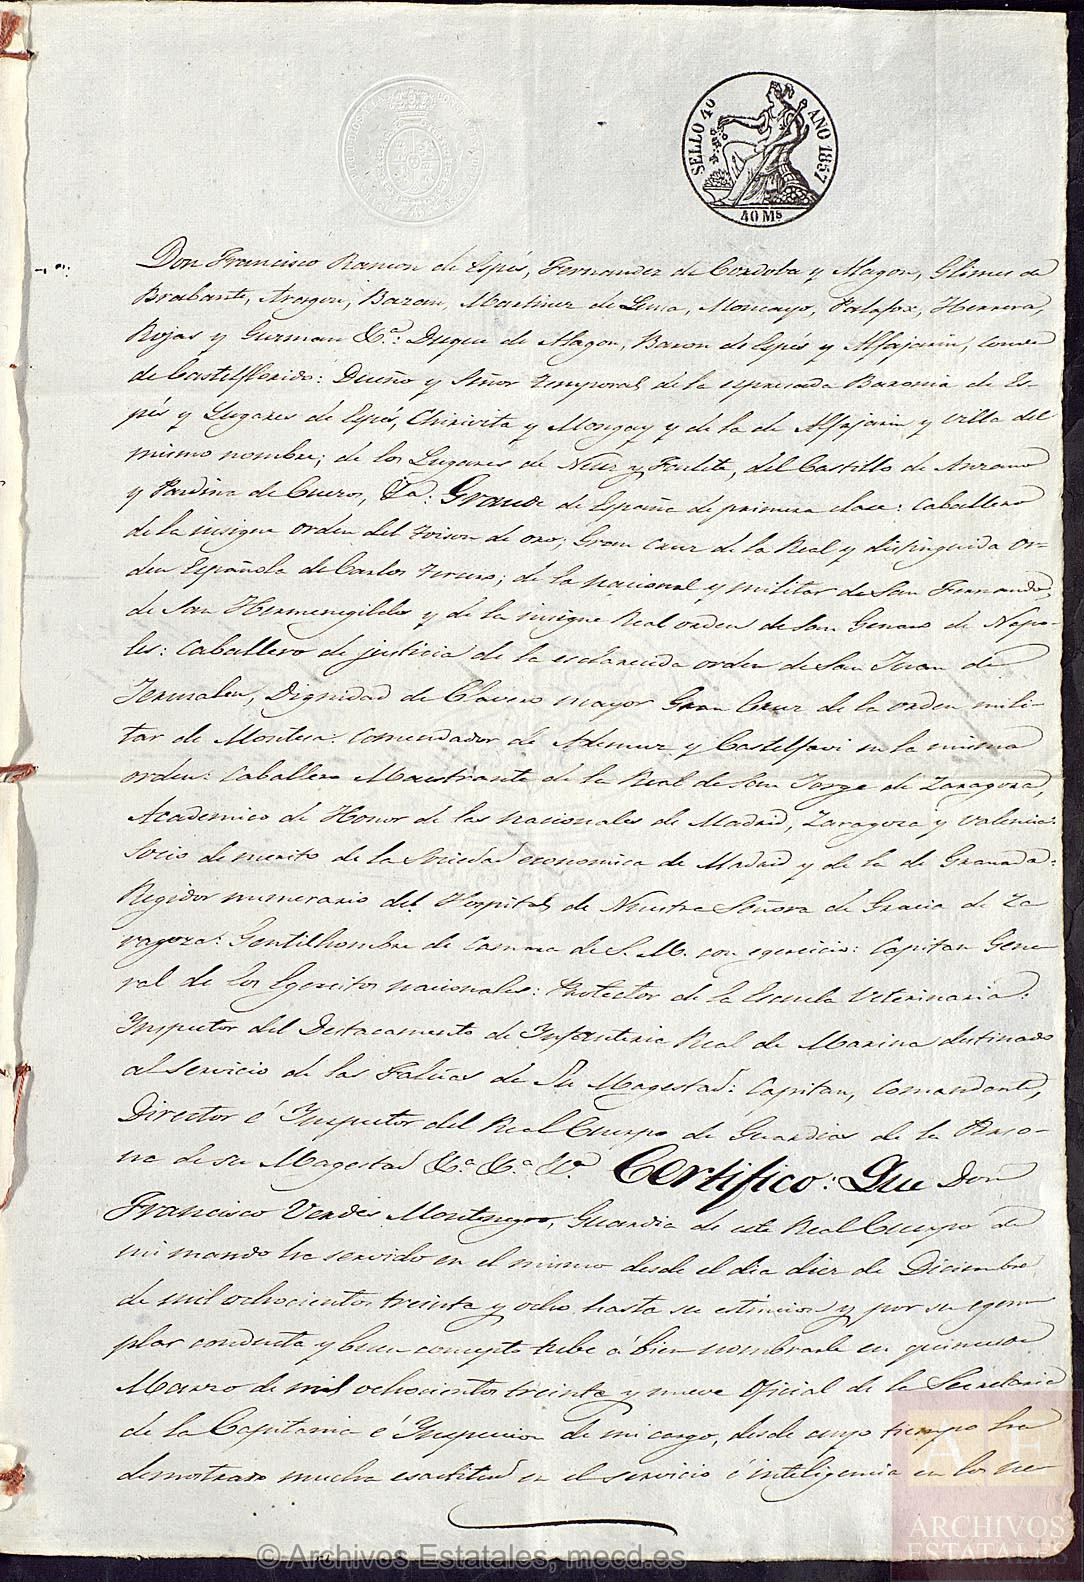 SELLO 4º AÑO 1857
40 Ms
Don Francisco Ramon de Espés, Fernandez de Cordoba y Magon, Glimes de
Brabante, Aragon, Bazan, Martinez de Luna, Moncayo, Palafox, Herrera,
Rojas y Guzman &ª: Duque de Alagon, Baron de Espés y Alfajarin, Conde
de Castelflorido: Dueño y Señor temporal de la espresada Baronia de Es-
pés y Lugares de Espés, Chiriveta y Mongay y de la de Alfajarin y Villa del
mismo nombre; de los Lugares de Nuez y Farlete, del Castillo de Anzano
y Pardina de Cuezos, &a: Grande de España de primera clase: Caballero
de la insigne orden del Toison de oro; Gran Cruz de la Real y distinguida or-
den Española de Carlos Tercero; de la nacional y militar de San Fernando,
de San Hermenegildo y de la insigne Real orden de San Genaro de Napo-
les: Caballero de justicia de la esclarecida orden de San Juan de
Jerusalen, Dignidad de Clavero mayor Gran Cruz de la orden mili-
tar de Montesa. Comendador de Ademuz y Castelfavi en la misma
orden: Caballero Maestrante de la Real de San Jorge de Zaragoza,
Academico de Honor de las nacionales de Madrid, Zaragoza y Valencia:
Socio de merito de la Sociedad economica de Madrid y de la de Granada:
Regidor numerario del Hospital de Nuestra Señora de Gracia de Za
ragoza: Gentilhombre de Camara de S. M. con egercicio: Capitan Gene
ral de los Egercitos nacionales: Protector de la Escuela Veterinaria:
Inspector del Destacamento de Infanteria Real de Marina destinado
al servicio de las Falúas de Su Magestad: Capitan, Comandante,
Director é Inspector del Real Cuerpo de Guardias de la Perso-
na de su Magestad &ª &ª &ª Certifico: Que Don
Francisco Verdes Montenegro, Guardia de este Real Cuerpo de
mi mando ha servido en el mismo desde el dia diez de Diciembre
de mil ochocientos treinta y ocho hasta su estincion y por su egem
plar conducta y buen concepto tube á bien nombrarle en primero de
Marzo de mil ochocientos treinta y nueve Oficial de la Secretaria
de la Capitania é Inspeccion de mi cargo, desde cuyo tiempo ha
demostrado mucha esactitud en el servicio é inteligencia en los ne
A E
ARCHIVOS
ESTATALES
© Archivos Estatales, mecd.es